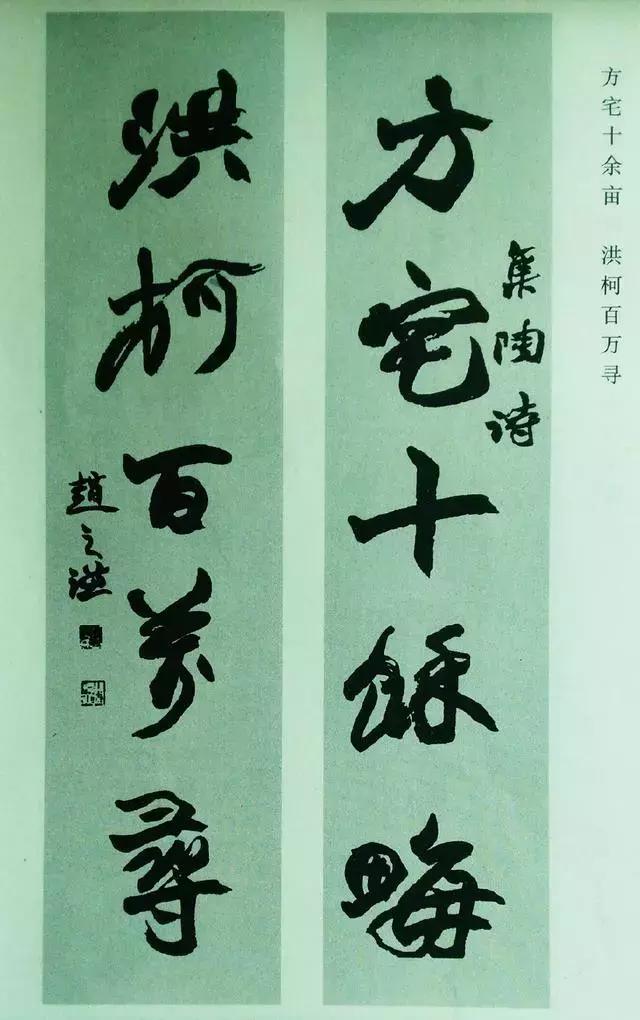 方宅十余亩 洪柯百万寻
集陶詩
方宅十餘畮
洪柯百萬尋
趙之